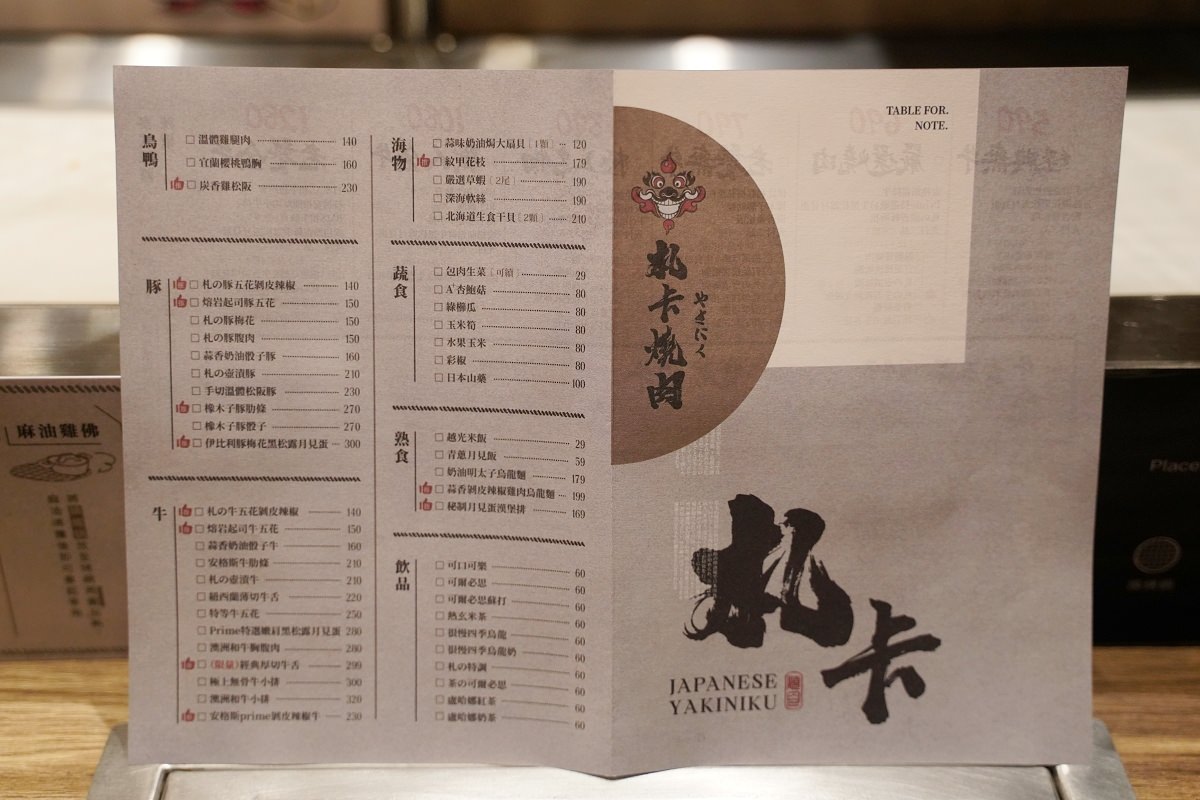 鳥鴨
溫體雞腿肉 140
宜蘭櫻桃鴨胸 160
炭香雞松阪 230
豚
札の豚五花剝皮辣椒 140
熔岩起司豚五花 150
札の豚梅花 150
札の豚腹肉 150
蒜香奶油骰子豚 160
札の壺漬豚 210
手切溫體松阪豚 230
橡木子豚肋條 270
橡木子豚骰子 270
伊比利豚梅花黑松露月見蛋 300
牛
札の牛五花剝皮辣椒 140
熔岩起司牛五花 150
蒜香奶油骰子牛 160
安格斯牛肋條 210
札の壺漬牛 210
紐西蘭薄切牛舌 220
特等牛五花 250
Prime特選嫩肩黑松露月見蛋 280
澳洲和牛胸腹肉 280
(限量)經典厚切牛舌 299
極上無骨牛小排 300
澳洲和牛小排 320
安格斯prime剝皮辣椒牛 230
海物
蒜味奶油焗大扇貝［1顆］ 120
紋甲花枝 179
嚴選草蝦［2尾］ 190
深海軟絲 190
北海道生食干貝［2顆］ 210
蔬食
包肉生菜［可續］ 29
A+杏鮑菇 80
綠櫛瓜 80
玉米筍 80
水果玉米 80
彩椒 80
日本山藥 100
熟食
越光米飯 29
青蔥月見飯 59
奶油明太子烏龍麵 179
蒜香剝皮辣椒雞肉烏龍麵 199
秘制月見蛋漢堡排 169
飲品
可口可樂 60
可爾必思 60
可爾必思蘇打 60
熱玄米茶 60
很慢四季烏龍 60
很慢四季烏龍奶 60
札の特調 60
茶の可爾必思 60
盧哈娜紅茶 60
盧哈娜奶茶 60
TABLE FOR.
NOTE.
札卡燒肉
やきにく
札卡
JAPANESE
YAKINIKU
麻油雞佛
Place